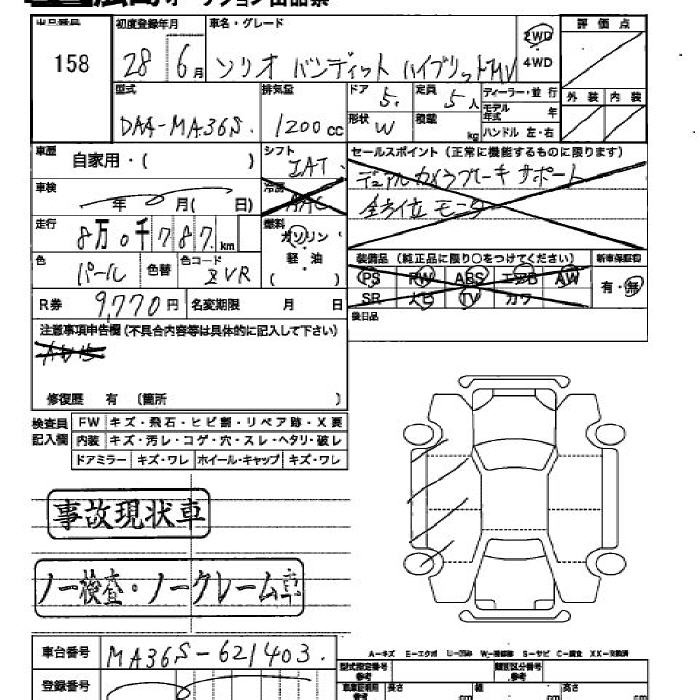 オークション出品票
出品番号 初度登録年月 車名・グレード 2WD 評価点
158 28年 6月 ソリオ バンディット ハイブリットMV 4WD
外装 内装
型式 排気量 ドア 定員 ディーラー・並行
DAA-MA36S. 1200cc 5. 5人 モデル年式 年
形状 W 積載 kg ハンドル 左・右
車歴 自家用・( ) シフト IAT セールスポイント(正常に機能するものに限ります)
車検 年 月( 日) 冷房 AAC デュアルカメラブレーキサポート
全方位モニター
走行 8万0千787km 燃料 ガソリン
軽油
( )
色 パール 色替 色コード ZVR 装備品(純正品に限り○をつけてください) 新車保証書
PS PW ABS エアB AW 有・無
R券 9,770円 名変期限 月 日 SR ナビ TV カワ
注意事項申告欄(不具合内容等は具体的に記入して下さい) 後日品
修復歴 有 (箇所 )
検査員記入欄 FW キズ・飛石・ヒビ割・リペア跡・X要
内装 キズ・汚レ・コゲ・穴・スレ・ヘタリ・破レ
ドアミラー キズ・ワレ ホイール・キャップ キズ・ワレ
事故現状車
ノー検査・ノークレーム車
車台番号 MA36S-621403.
A-キズ E-エクボ U-凹み W-補修跡 S-サビ C-腐食 XX-交換済
型式指定番号 参考 類別区分番号 参考
登録番号 車庫証明用 参考 長さ cm 幅 cm 高さ cm